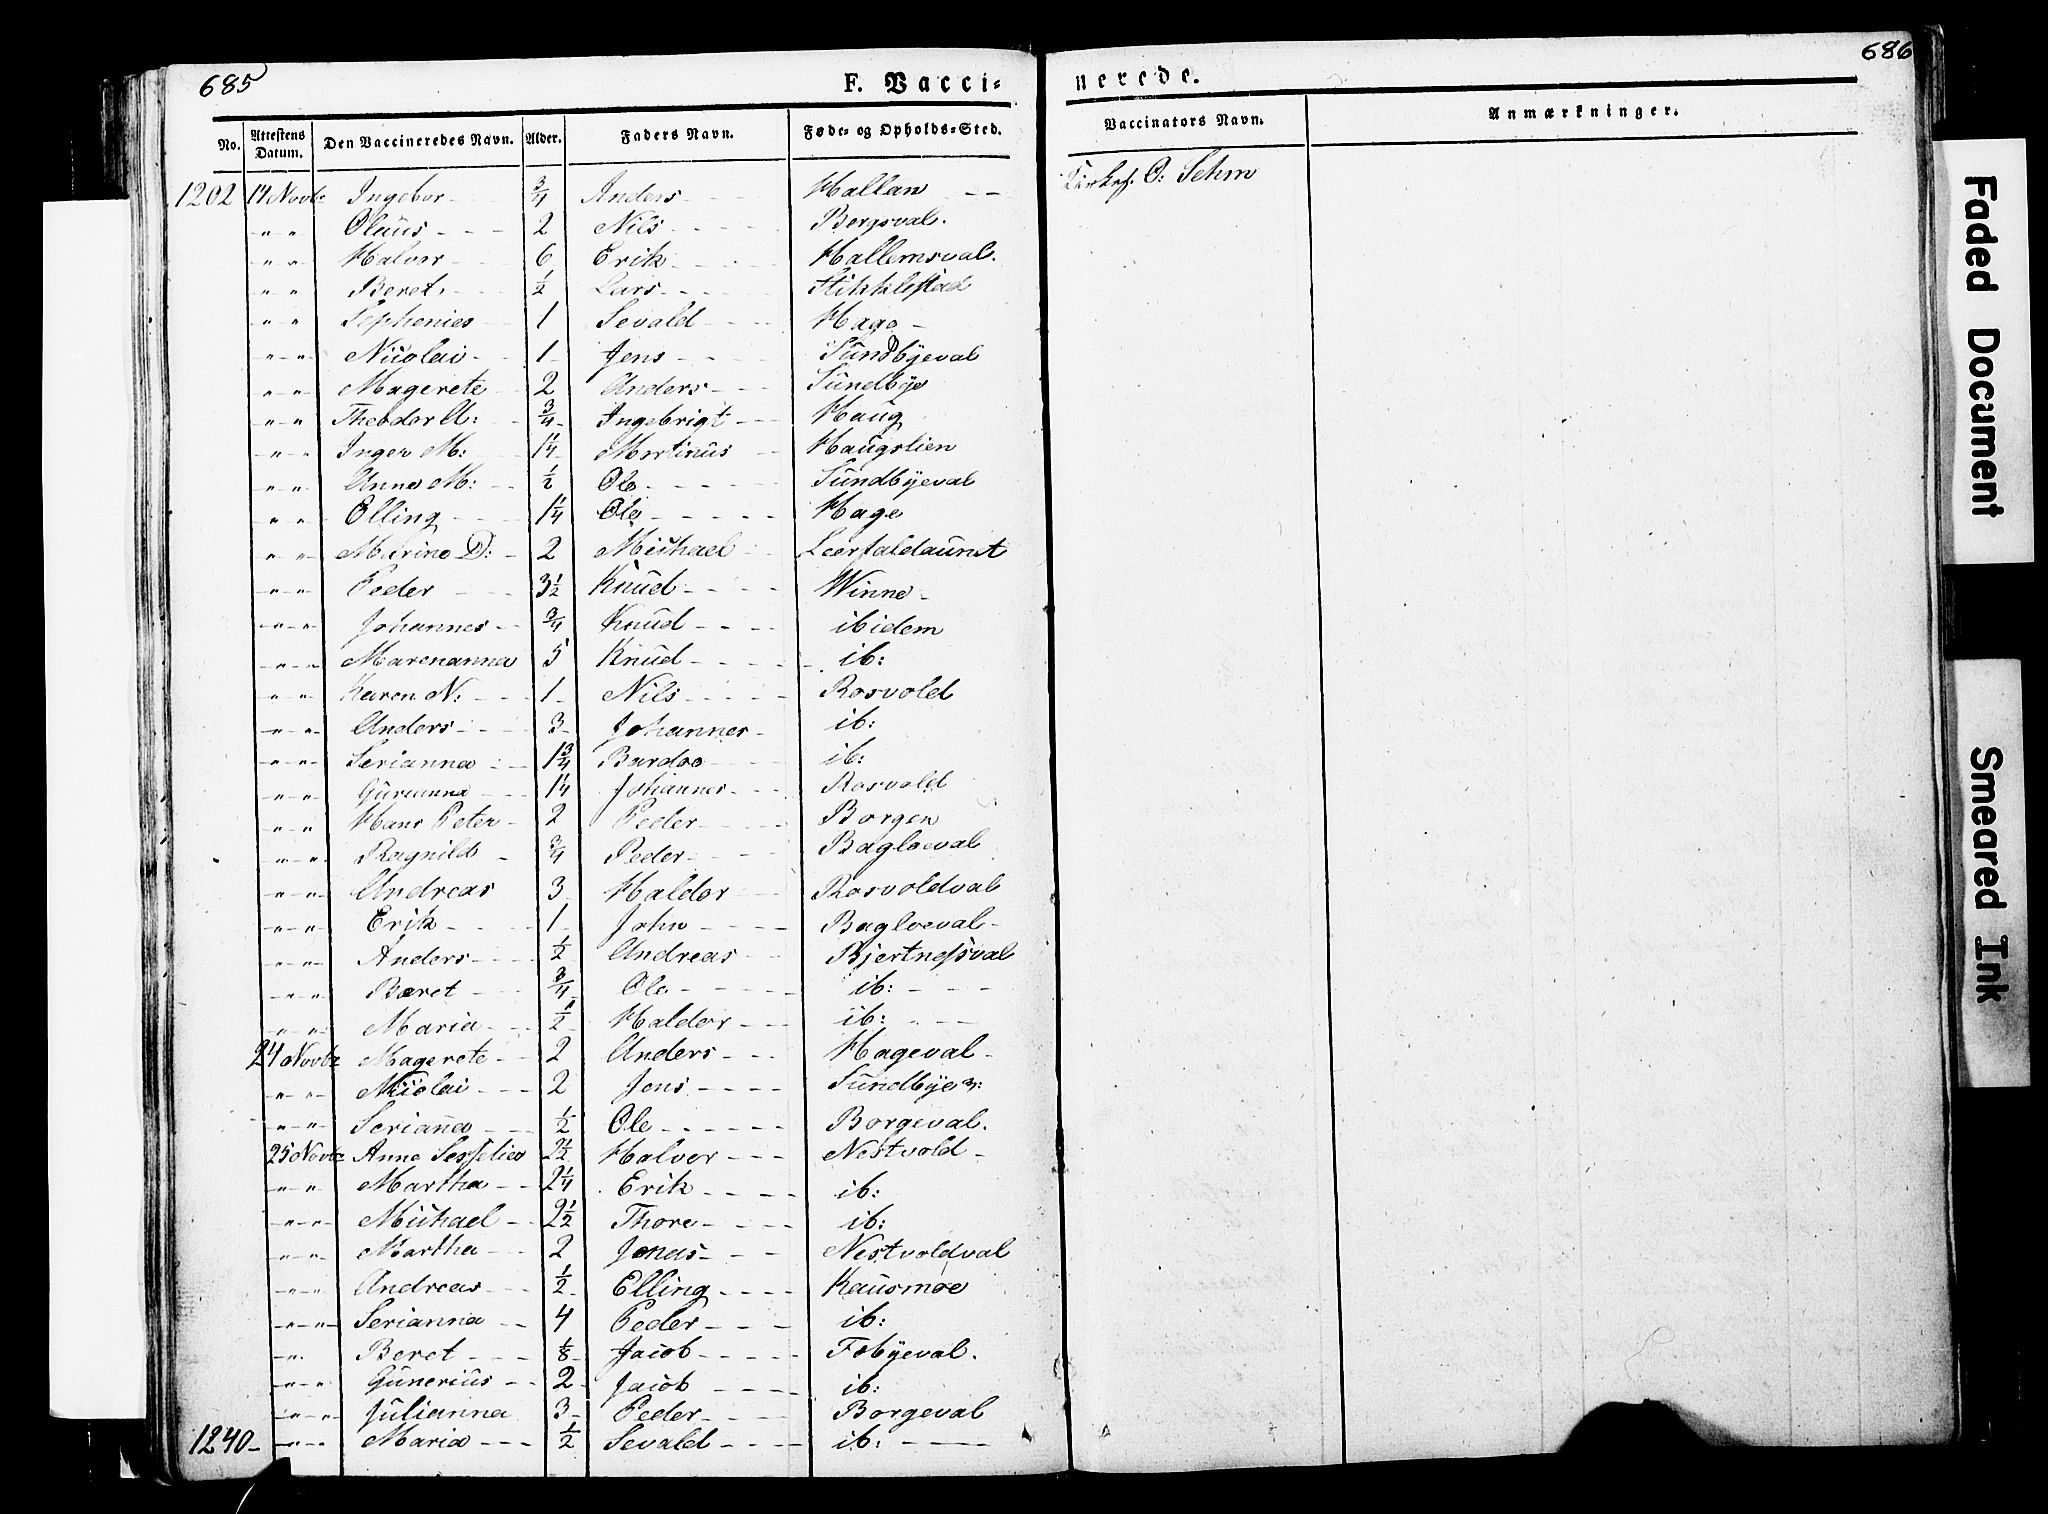 685
F. Vacci-
nerede.
686
No. Attestens Datum. Den Vaccineredes Navn. Alder. Faders Navn. Føde- og Opholds-Sted. Vaccinators Navn. Anmærkninger.
1202 14 Novbr Ingebor 3/4 Anders Hallan O: Sehm
" " Olaus 2 Nils Bergsval.
" " Halvor 6 Erik Hallemsval.
" " Beret 1/2 Lars Stikklestad
" " Sephenies 1 Sevald Hage
" " Nicolai 1 Jens Sundbyeval
" " Magerete 2 Anders Sundbye
" " Theodor A: 3/4 Ingebrigt Haug
" " Inger M: 1 1/4 Martinus Haugslien
" " Anne M: 1/2 Ole Sundbyeval
" " Elling 1 1/4 Ole Hage
" " Marine D: 2 Michael Leerfaldaunet
" " Peder 3 1/2 Knud Winne
" " Johannes 3/4 Knud ibidem
" " Marenanna 5 Knud ib:
" " Karen N: 1 Nils Rosvold
" " Anders 3 Johannes ib:
" " Serianna 1 3/4 Bardoe ib:
" " Gurianna 1 1/4 Johannes Rosvold
" " Hans Peter 2 Peder Borgen
" " Ragnild 3/4 Peder Bagloeval
" " Andreas 3 Haldor Rosvoldval
" " Erik 1 John Bagloeval
" " Anders 1/2 Andreas Bjertnesval
" " Beret 3/4 Ole ib:
" " Maria 1/2 Haldor ib:
24 Novbr Magerete 2 Anders Hageval
" " Nicolai 2 Jens Sundbye
" " Seriana 1/2 Ole Borgeval.
25 Novbr Anne 2 1/2 Halvor Nestvold
" " Martha 2 1/4 Erik ib:
" " Michael 2 1/2 Thore ib:
" " Martha 2 Jonas Nestvoldval
" " Andreas 1/2 Elling Kausmoe
" " Serianna 4 Peder ib:
" Beret 1/8 Jacob Febyeval.
" " Gunerius 2 Jacob ib:
" " Julianna 3 Peder Borgeval
1240 " " Maria 1/2 Sevald ib:
Faded Document
Smeared Ink